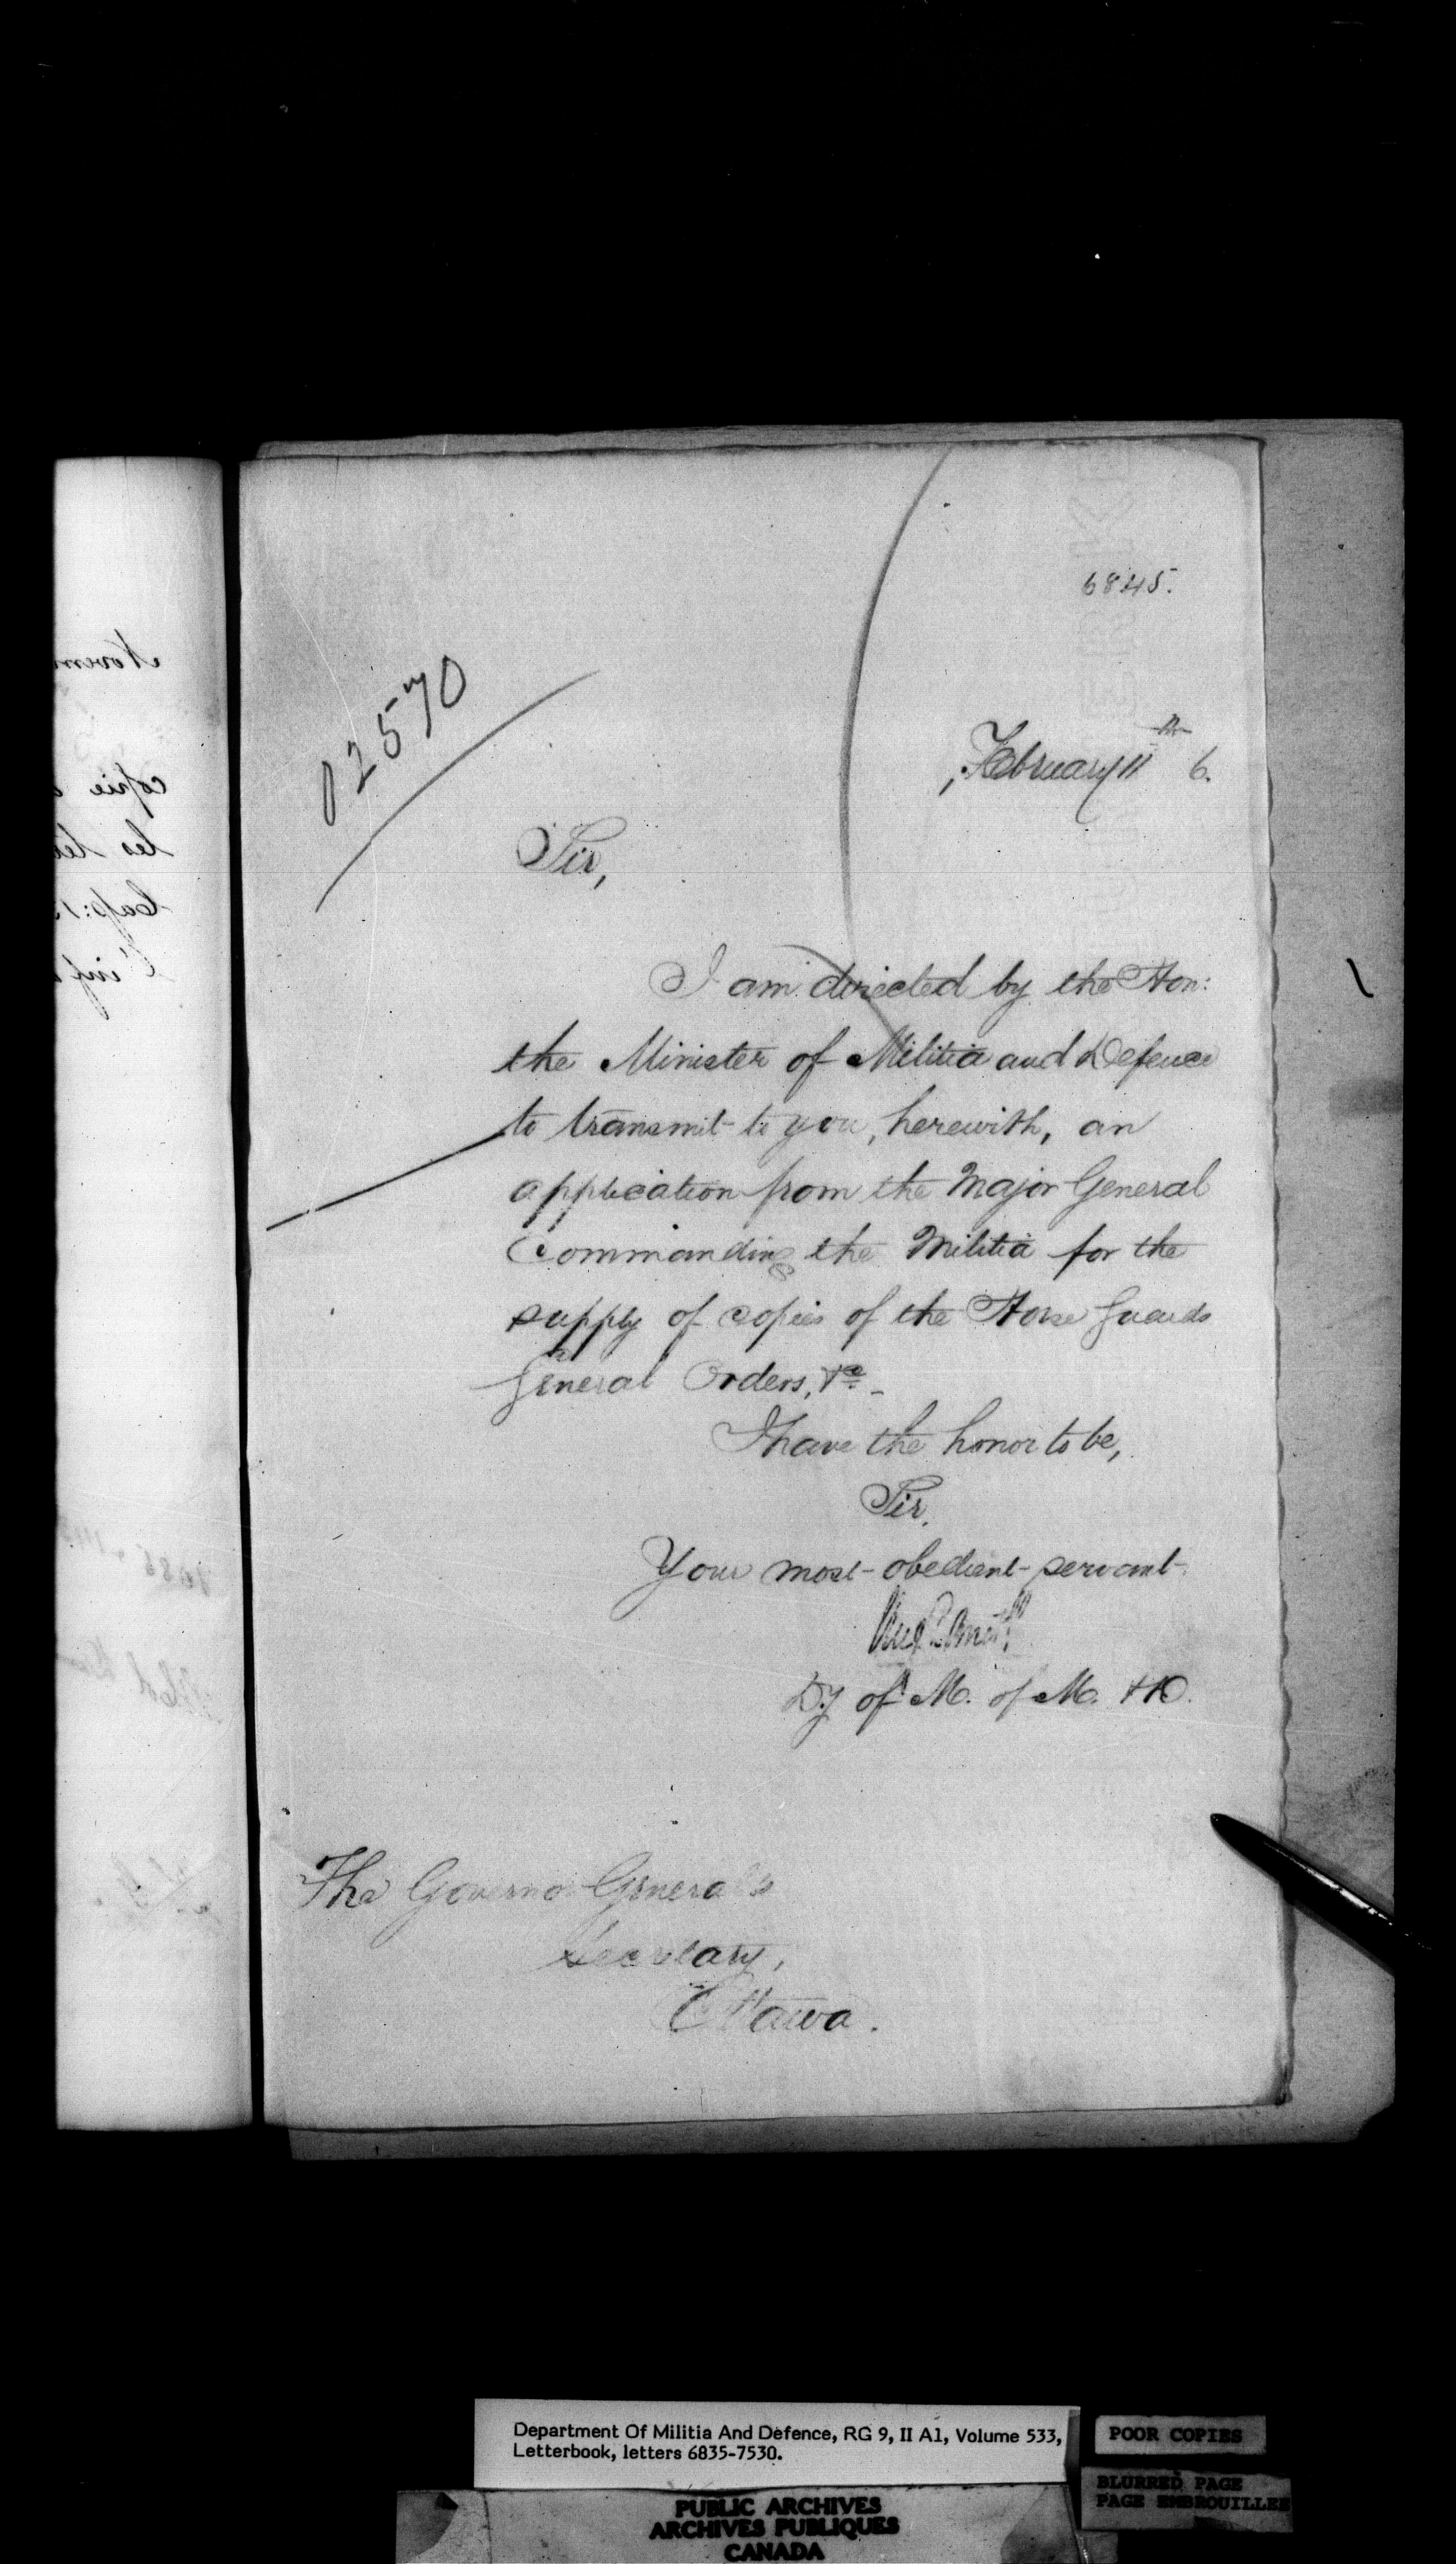 6845.
02570
February 11th 6.
Sir,
I am directed by the Hon:
the Minister of Militia and Defence
to transmit to you, herewith, an
application from the Major General
Commanding the Militia for the
supply of copies of the Horse Guards
General Orders, &c. -
I have the honor to be,
Sir,
Your most obedient servant
Dy of M. of M. & D.
The Governor General's
Secretary,
Ottawa.
copie
les
Department Of Militia And Defence, RG 9, II A1, Volume 533,
Letterbook, letters 6835-7530.
POOR COPIES
BLURRED PAGE
PAGE EMBROUILLEE
PUBLIC ARCHIVES
ARCHIVES PUBLIQUES
CANADA